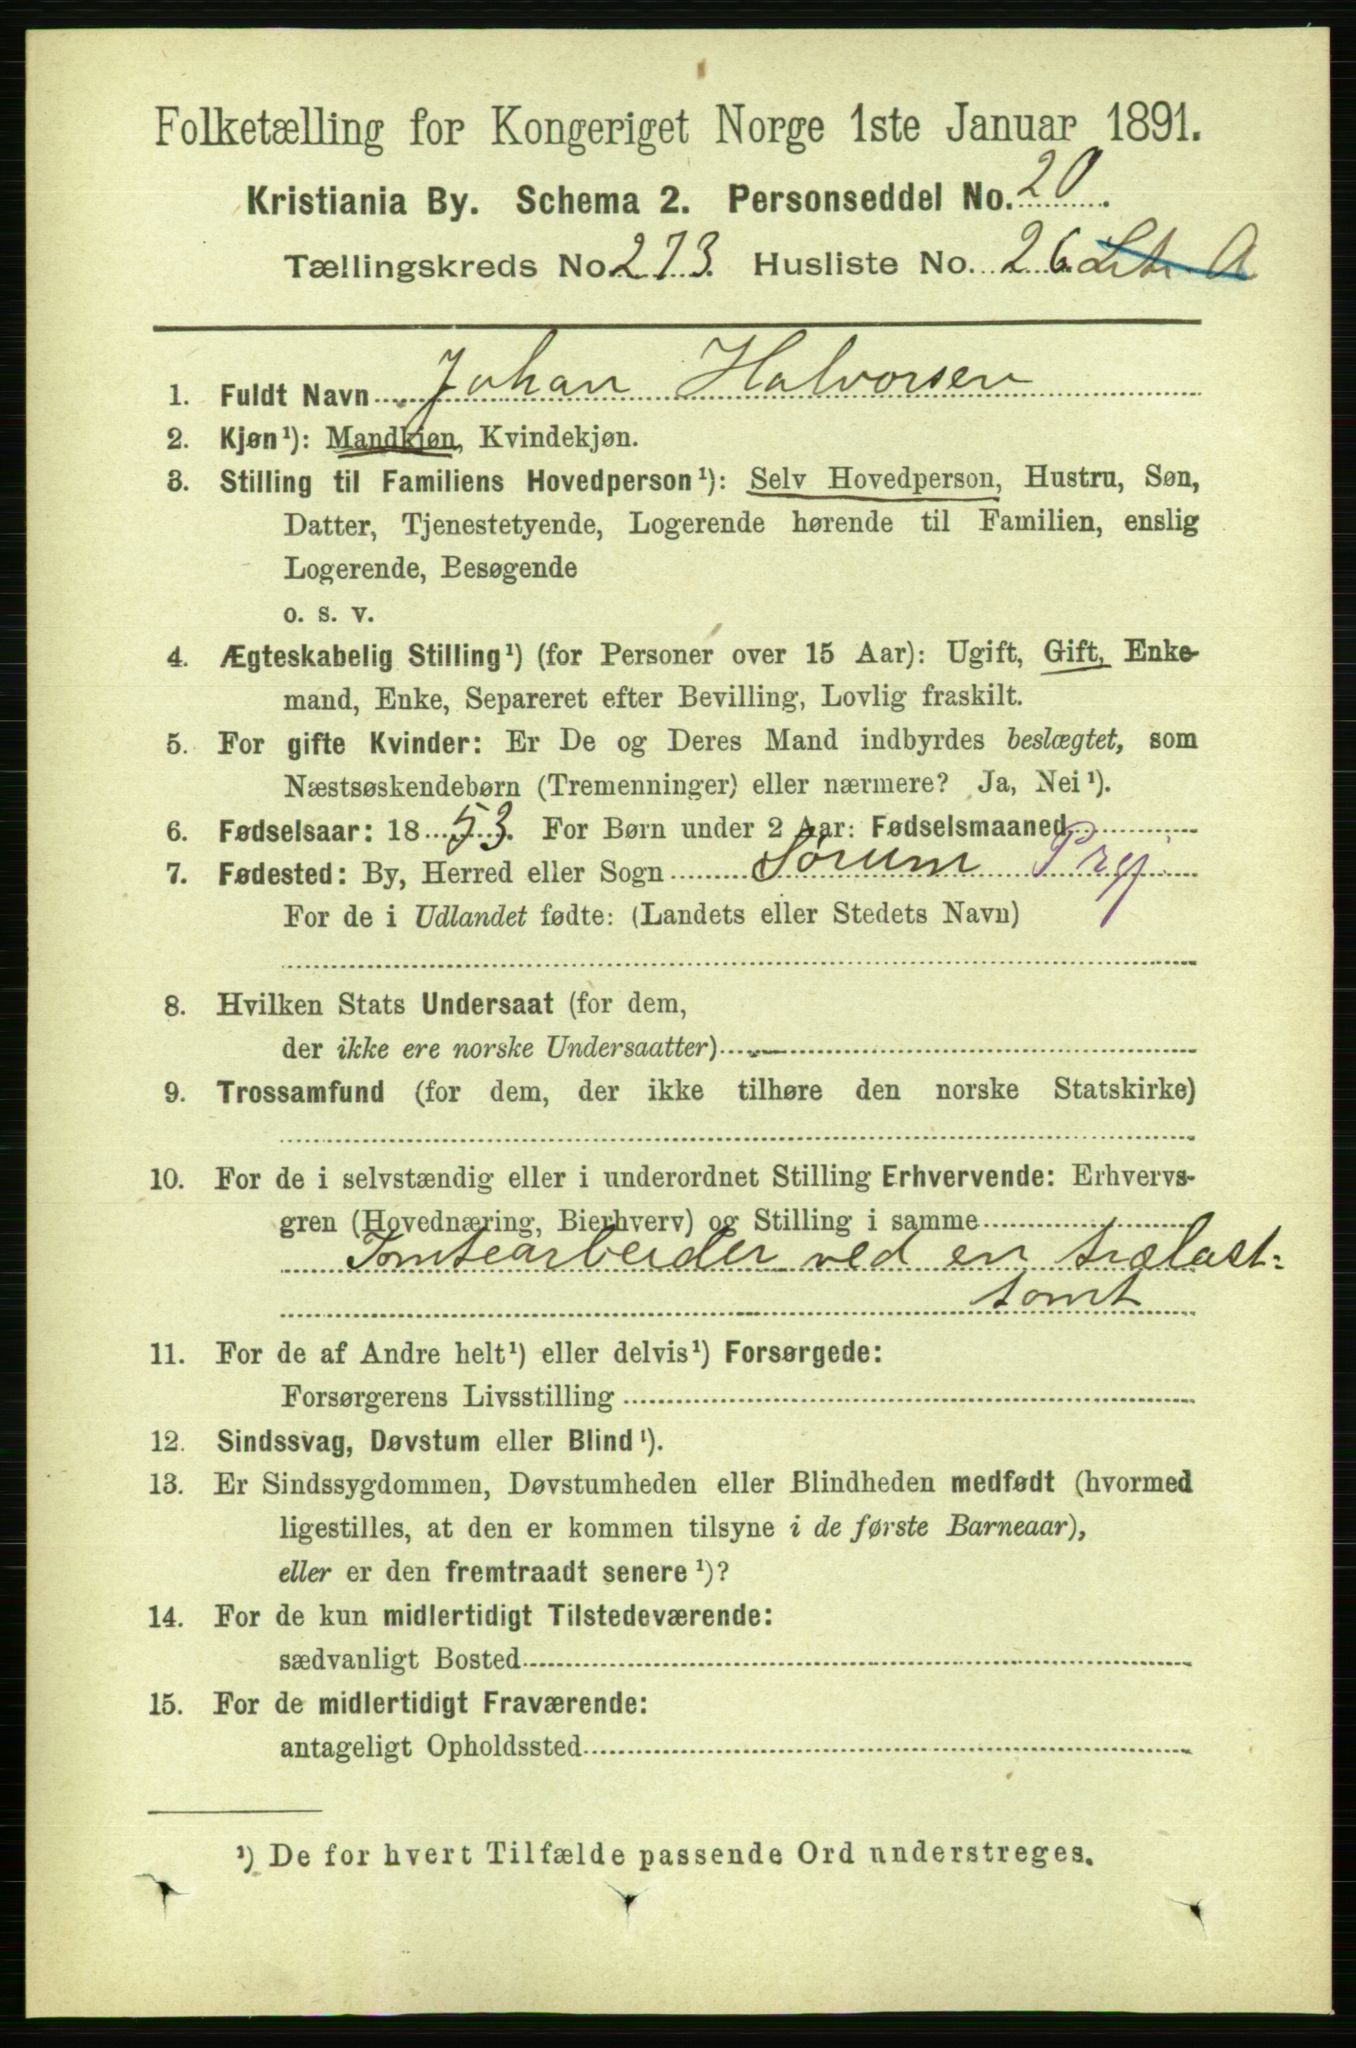 Folketælling for Kongeriget Norge 1ste Januar 1891.
Kristiania By. Schema 2. Personseddel No. 20.
Tællingskreds No. 273. Husliste No. 26. Litr. A
1. Fuldt Navn Johan Halvorsen
2. Kjøn¹): Mandkjøn, Kvindekjøn.
3. Stilling til Familiens Hovedperson¹): Selv Hovedperson, Hustru, Søn,
Datter, Tjenestetyende, Logerende hørende til Familien, enslig
Logerende, Besøgende
o. s. v.
4. Ægteskabelig Stilling¹) (for Personer over 15 Aar): Ugift, Gift, Enke-
mand, Enke, Separeret efter Bevilling, Lovlig fraskilt.
5. For gifte Kvinder: Er De og Deres Mand indbyrdes beslægtet, som
Næstsøskendebørn (Tremenninger) eller nærmere? Ja, Nei¹).
6. Fødselsaar: 1853. For Børn under 2 Aar: Fødselsmaaned
7. Fødested: By, Herred eller Sogn Sørum Prgj.
For de i Udlandet fødte: (Landets eller Stedets Navn)
8. Hvilken Stats Undersaat (for dem,
der ikke ere norske Undersaatter)
9. Trossamfund (for dem, der ikke tilhøre den norske Statskirke)
10. For de i selvstændig eller i underordnet Stilling Erhvervende: Erhvervs-
gren (Hovednæring, Bierhverv) og Stilling i samme
Tomtearbeider ved en trælast-
tomt
11. For de af Andre helt¹) eller delvis¹) Forsørgede:
Forsørgerens Livsstilling
12. Sindssvag, Døvstum eller Blind¹).
13. Er Sindssygdommen, Døvstumheden eller Blindheden medfødt (hvormed
ligestilles, at den er kommen tilsyne i de første Barneaar),
eller er den fremtraadt senere¹)?
14. For de kun midlertidigt Tilstedeværende:
sædvanligt Bosted
15. For de midlertidigt Fraværende:
antageligt Opholdssted
¹) De for hvert Tilfælde passende Ord understreges.